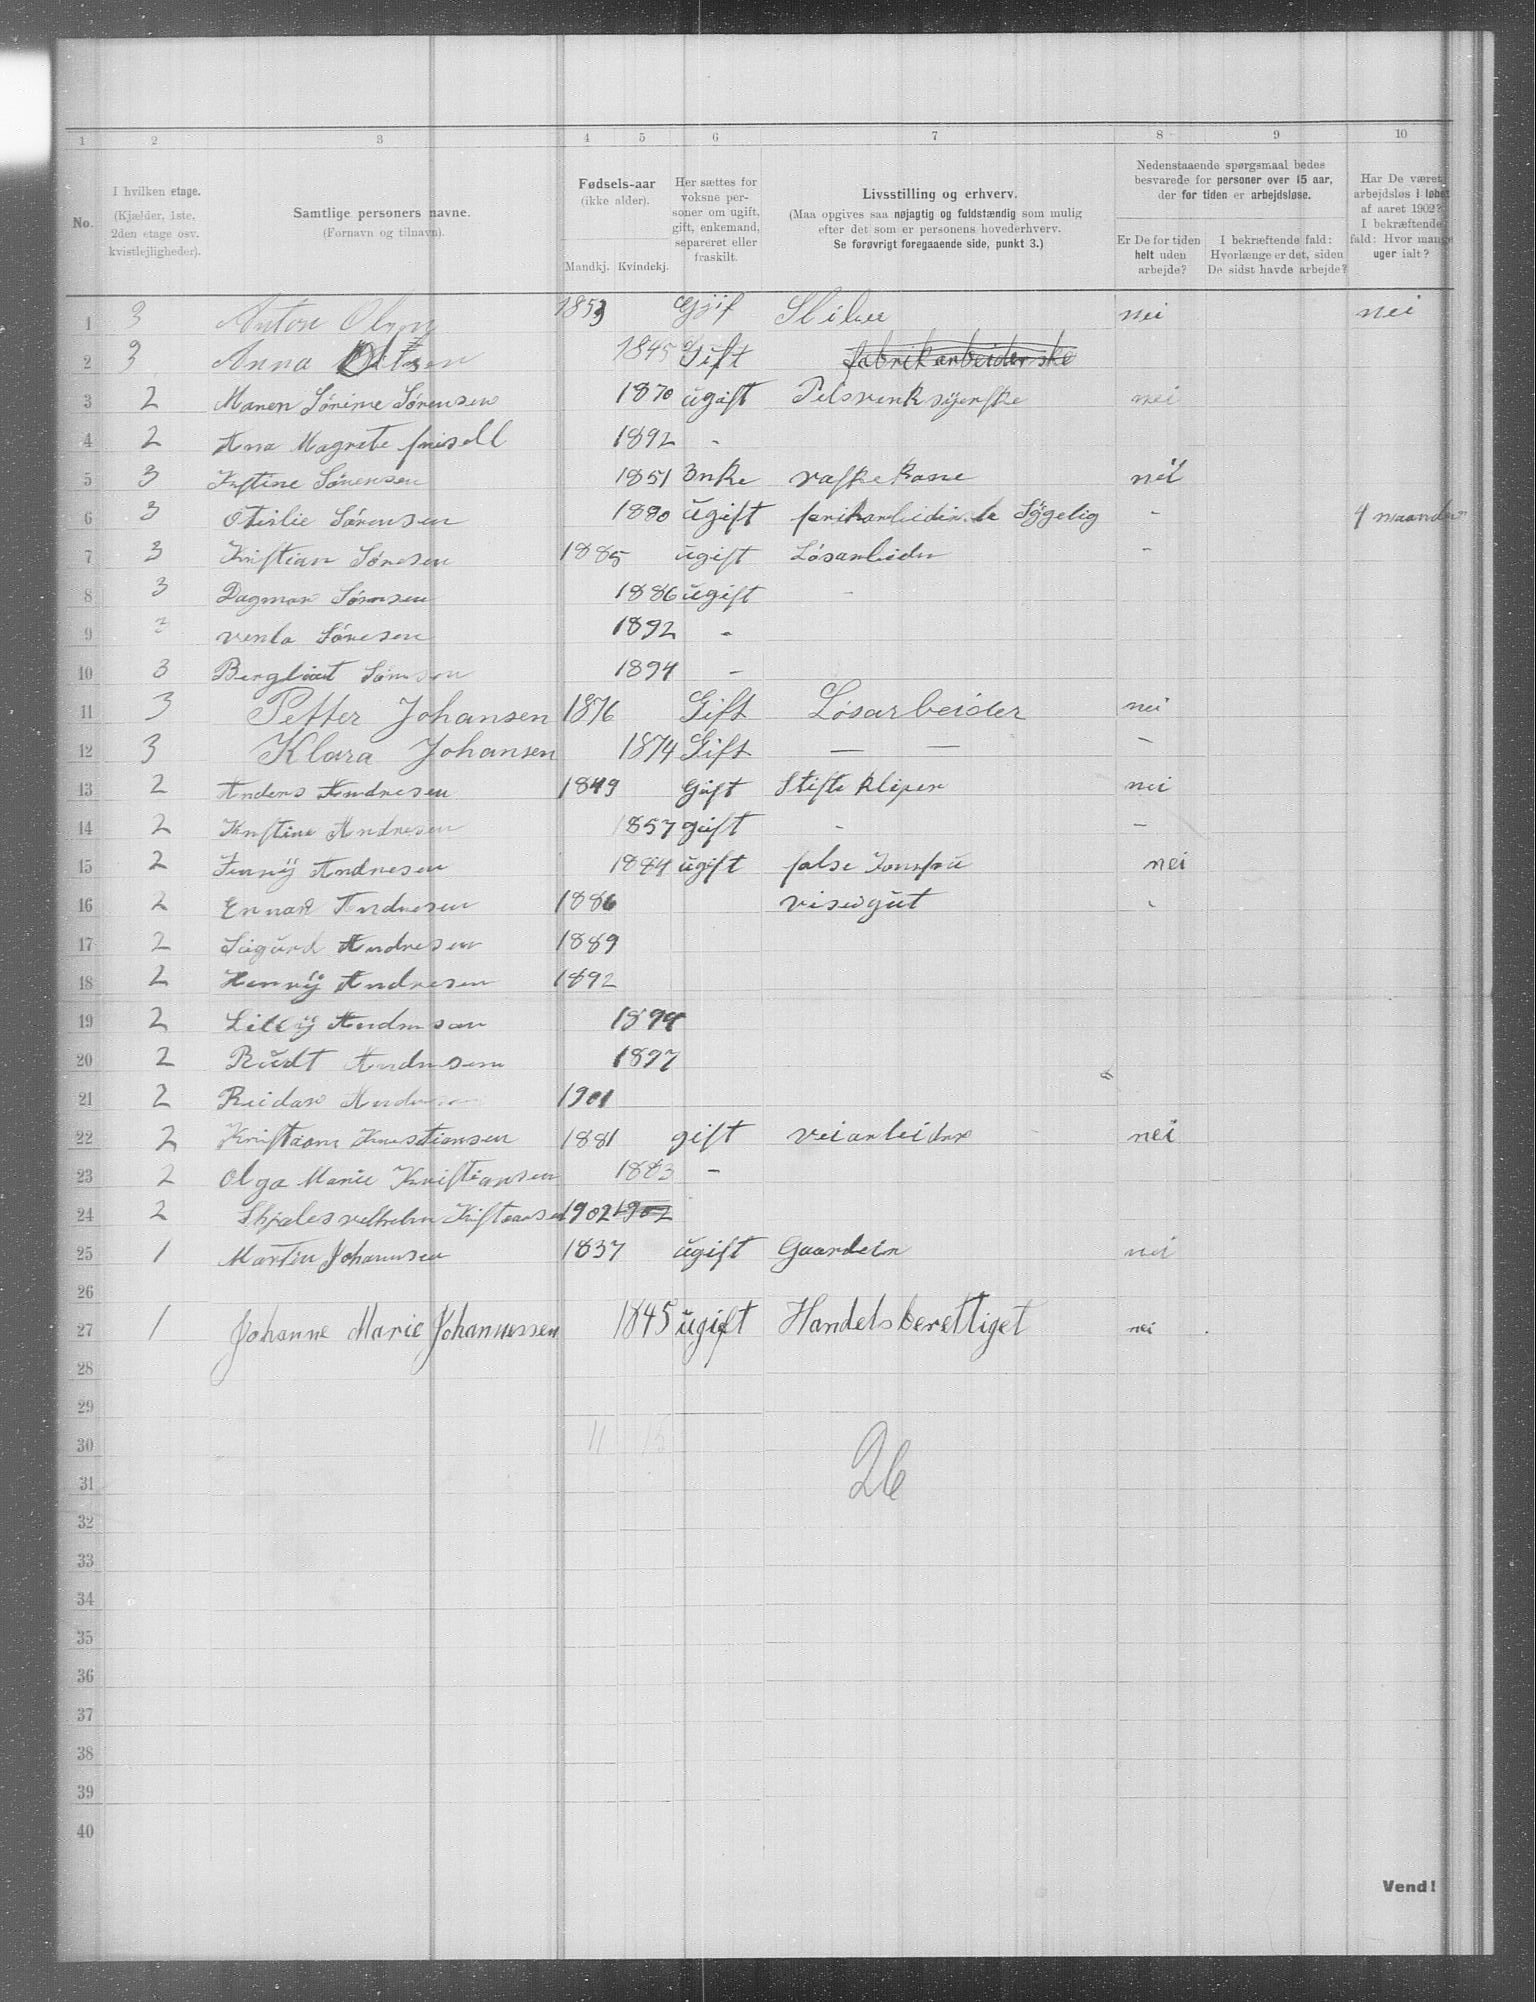 1 2 3 4 5 6 7 8 9 10
No.
I hvilken etage.
(Kjælder, 1ste,
2den etage osv.
kvistlejligheder).
Samtlige personers navne.
(Fornavn og tilnavn).
Fødsels-aar
(ikke alder).
Mandkj. Kvindekj.
Her sættes for
voksne per-
soner om ugift,
gift, enkemand,
separeret eller
fraskilt.
Livsstilling og erhverv.
(Maa opgives saa nøjagtig og fuldstændig som mulig
efter det som er personens hovederhverv.
Se forøvrigt foregaaende side, punkt 3.)
Nedenstaaende spørgsmaal bedes
besvarede for personer over 15 aar,
der for tiden er arbejdsløse.
Er De for tiden
helt uden
arbejde?
I bekræftende fald:
Hvorlænge er det, siden
De sidst havde arbejde?
Har De været
arbejdsløs i løbet
af aaret 1902?
I bekræftende
fald: Hvor mange
uger ialt?
1 3 Anton 1853 nei nei
2 3 Anna 1845 Gift fabrikarbeiderske
3 2 Maren Sørine Sørensen 1870 ugift Pelsverksyerske nei
4 2 Ana Magrete 1892 -
5 3 Sørensen 1851 Enke vaskekone nei
6 3 Otilie Sørensen 1880 ugift Sygelig - 4 maander
7 3 Kristian Søresen 1885 ugift Løsarbeider -
8 3 Dagmar Sørnsen 1886 ugift -
9 Søresen 1892 -
10 3 Bergliot Sørnsen 1894 -
11 3 Petter Johansen 1876 Gift Løsarbeider nei
12 3 Klara Johansen 1874 Gift — — -
13 2 Anders Andresen 1849 Gift Stiftekliper nei
14 2 Kristine Andresen 1857 gift - -
15 2 Jenny Andresen 1884 ugift nei
16 2 Ennar Andresen 1886 visergut -
17 2 Sigurd Andresen 1889
18 2 Henny Andresen 1892
19 2 Lilly Andresen 1894
20 2 Rudt Andresen 1897
21 2 Reidar 1901
22 2 Kristian Kristiansen 1881 gift veiarbeider nei
23 2 Olga Marie Kristiansen 1883 -
24 2 1902 1902
25 1 Martin Johannsen 1837 ugift Gaardeier nei
26
27 1 Johanne Marie Johannessen 1845 ugift Handelsberettiget nei
28
29
30 11 15
26
31
32
33
34
35
36
37
38
39
40
Vend!